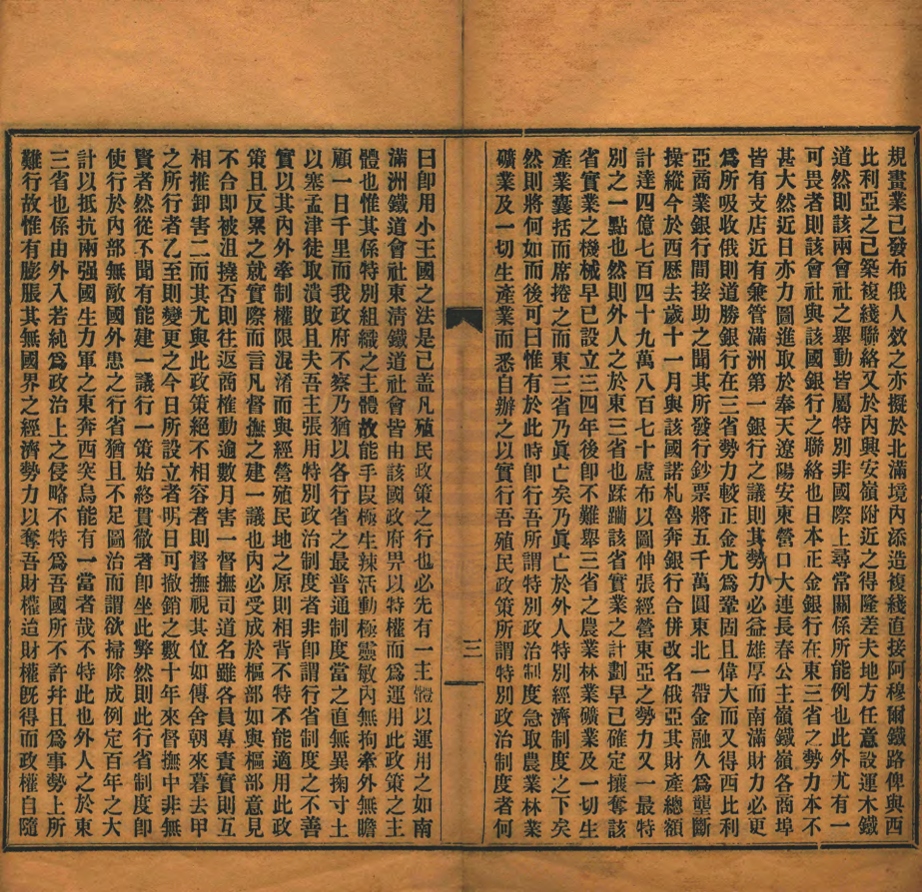 規畫業已發布俄人效之亦擬於北滿境內添造複綫直接阿穆爾鐵路俾與西
比利亞之已築複綫聯絡又於內興安嶺附近之得隆差夫地方任意設運木鐵
道然則該兩會社之舉動皆屬特別非國際上尋常關係所能例也此外尤有一
可畏者則該會社與該國銀行之聯絡也日本正金銀行在東三省之勢力本不
甚大然近日亦力圖進取於奉天遼陽安東營口大連長春公主嶺鐵嶺各商埠
皆有支店近有兼管滿洲第一銀行之議則其勢力必益雄厚而南滿財力必更
爲所吸收俄則道勝銀行在三省勢力較正金尤爲鞏固且偉大而又得西比利
亞商業銀行間接助之聞其所發行鈔票將五千萬圓東北一帶金融久爲壟斷
操縱今於西歷去歲十一月與該國諾札魯奔銀行合併改名俄亞其財產總額
計達四億七百四十九萬八百七十盧布以圖伸張經營東亞之勢力又一最特
別之一點也然則外人之於東三省也蹂躪該省實業之計劃早已確定攘奪該
省實業之機械早已設立三四年後卽不難舉三省之農業林業礦業及一切生
產業囊括而席捲之而東三省乃眞亡矣乃眞亡於外人特別經濟制度之下矣
然則將何如而後可曰惟有於此時卽行吾所謂特別政治制度急取農業林業
礦業及一切生產業而悉自辦之以實行吾殖民政策所謂特別政治制度者何
三
曰卽用小王國之法是已蓋凡殖民政策之行也必先有一主體以運用之如南
滿洲鐵道會社東淸鐵道社會皆由該國政府畀以特權而爲運用此政策之主
體也惟其係特別組織之主體故能手叚極生辣活動極靈敏內無拘牽外無瞻
顧一日千里而我政府不察乃猶以各行省之最普通制度當之直無異掬寸土
以塞孟津徒取潰敗且夫吾主張用特別政治制度者非卽謂行省制度之不善
實以其內外牽制權限混淆而與經營殖民地之原則相背不特不能適用此政
策且反累之就實際而言凡督撫之建一議也內必受成於樞部如與樞部意見
不合卽被沮撓否則往返商榷動逾數月害一督撫司道名雖各員專責實則互
相推卸害二而其尤與此政策絕不相容者則督撫視其位如傅舍朝來暮去甲
之所行者乙至則變更之今日所設立者明日可撤銷之數十年來督撫中非無
賢者然從不聞有能建一議行一策始終貫徹者卽坐此弊然則此行省制度卽
使行於內部無敵國外患之行省猶且不足圖治而謂欲掃除成例定百年之大
計以抵抗兩强國生力軍之東奔西突烏能有一當者哉不特此也外人之於東
三省也係由外入若純爲政治上之侵略不特爲吾國所不許幷且爲事勢上所
難行故惟有膨脹其無國界之經濟勢力以奪吾財權迨財權旣得而政權自隨